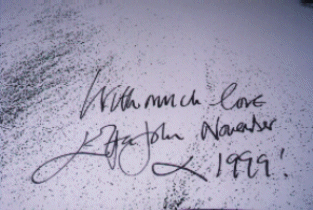 With much love
John November
1999!